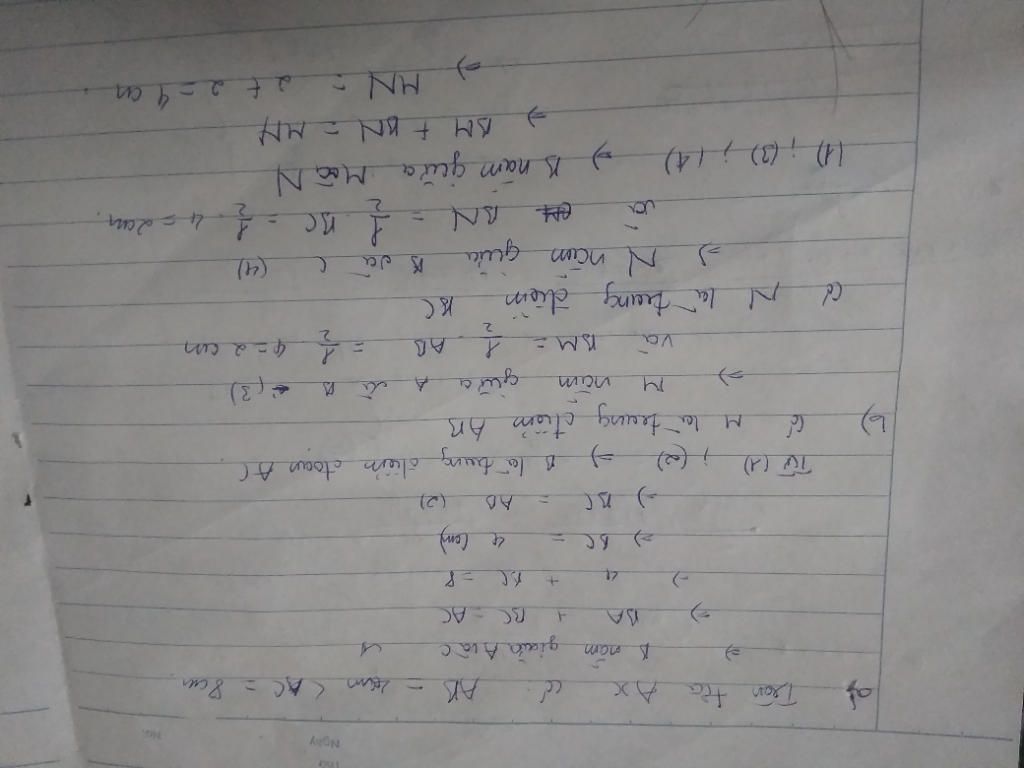 Thứ
Ngày
No.
a) Trên tia Ax có AB = 4cm < AC = 8cm
⇒ B nằm giữa A và C 1
⇒ BA + BC = AC
⇒ 4 + BC = 8
⇒ BC = 4 (cm)
⇒ BC = AB (2)
Từ (1) ; (2) ⇒ B là trung điểm đoạn AC
b) Có M là trung điểm AB
⇒ M nằm giữa A và B (3)
và BM = 1/2 AB = 1/2 4 = 2 cm
Có N là trung điểm BC
⇒ N nằm giữa B và C (4)
và BN = 1/2 BC = 1/2 . 4 = 2cm.
(1) ; (3) ; (4) ⇒ B nằm giữa M và N
⇒ BM + BN = MN
⇒ MN = 2 + 2 = 4 cm.